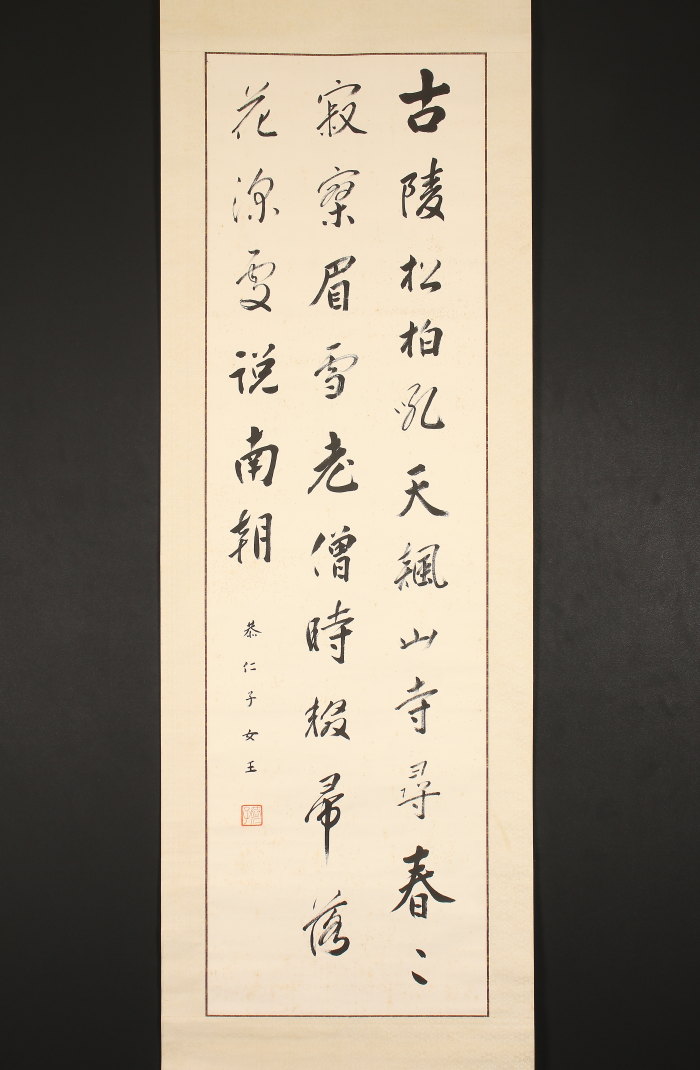 古陵松柏吼天飆山寺尋春々
寂寥眉雪老僧時輟帚落
花深處説南朝
恭仁子女王